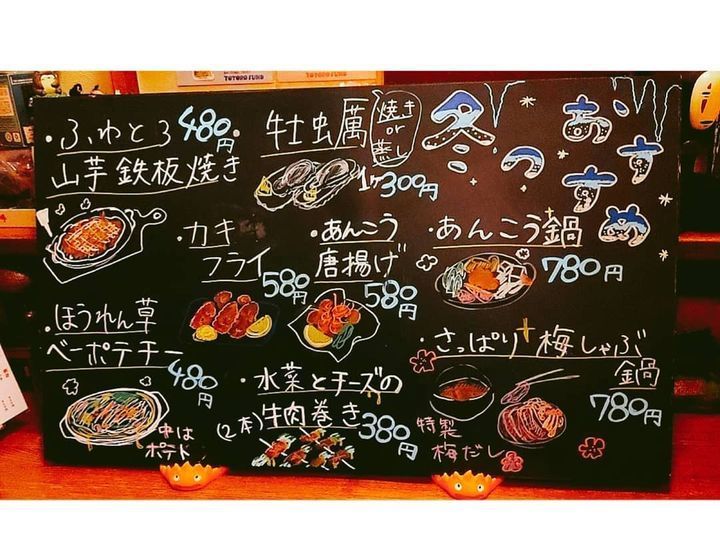 TOTORO FUND
冬のおすすめ
・ふわとろ
山芋鉄板焼き
480円
・牡虫厲
焼き
or
蒸し
1ヶ300円
・カキ
フライ
580円
・あんこう
唐揚げ
580円
・あんこう鍋
780円
・ほうれん草
ベーポテチー
480円
中は
ポテト
・水菜とチーズの
牛肉巻き
(2本)
380円
・さっぱり梅しゃぶ
鍋
780円
特製
梅だし